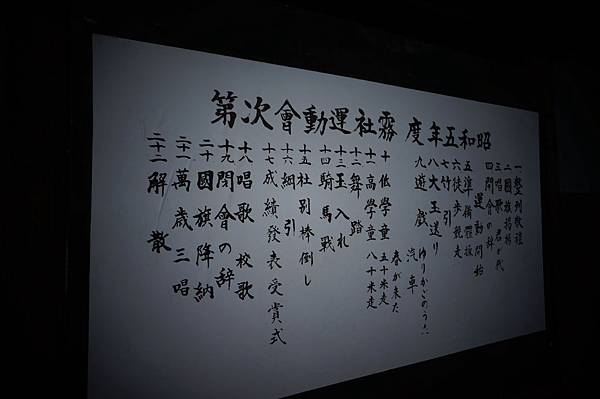 昭和五年度 霧社運動會次第
一 整列敬禮
二 國旗揭揚
三 唱歌 君が代
四 開會の辞
運動開始
五 準備體操
六 徒歩競走
七 竹引
八 大玉送り
九 遊戲 汽車
春が来た
十 低學童 五十米走
十一 高學童 八十米走
十二 舞踏
十三 玉入れ
十四 騎馬戰
十五 社別棒倒し
十六 綱引
十七 成績發表受賞式
十八 唱歌 校歌
十九 閉會の辞
二十 國旗降納
二十一 萬歳三唱
二十二 解散